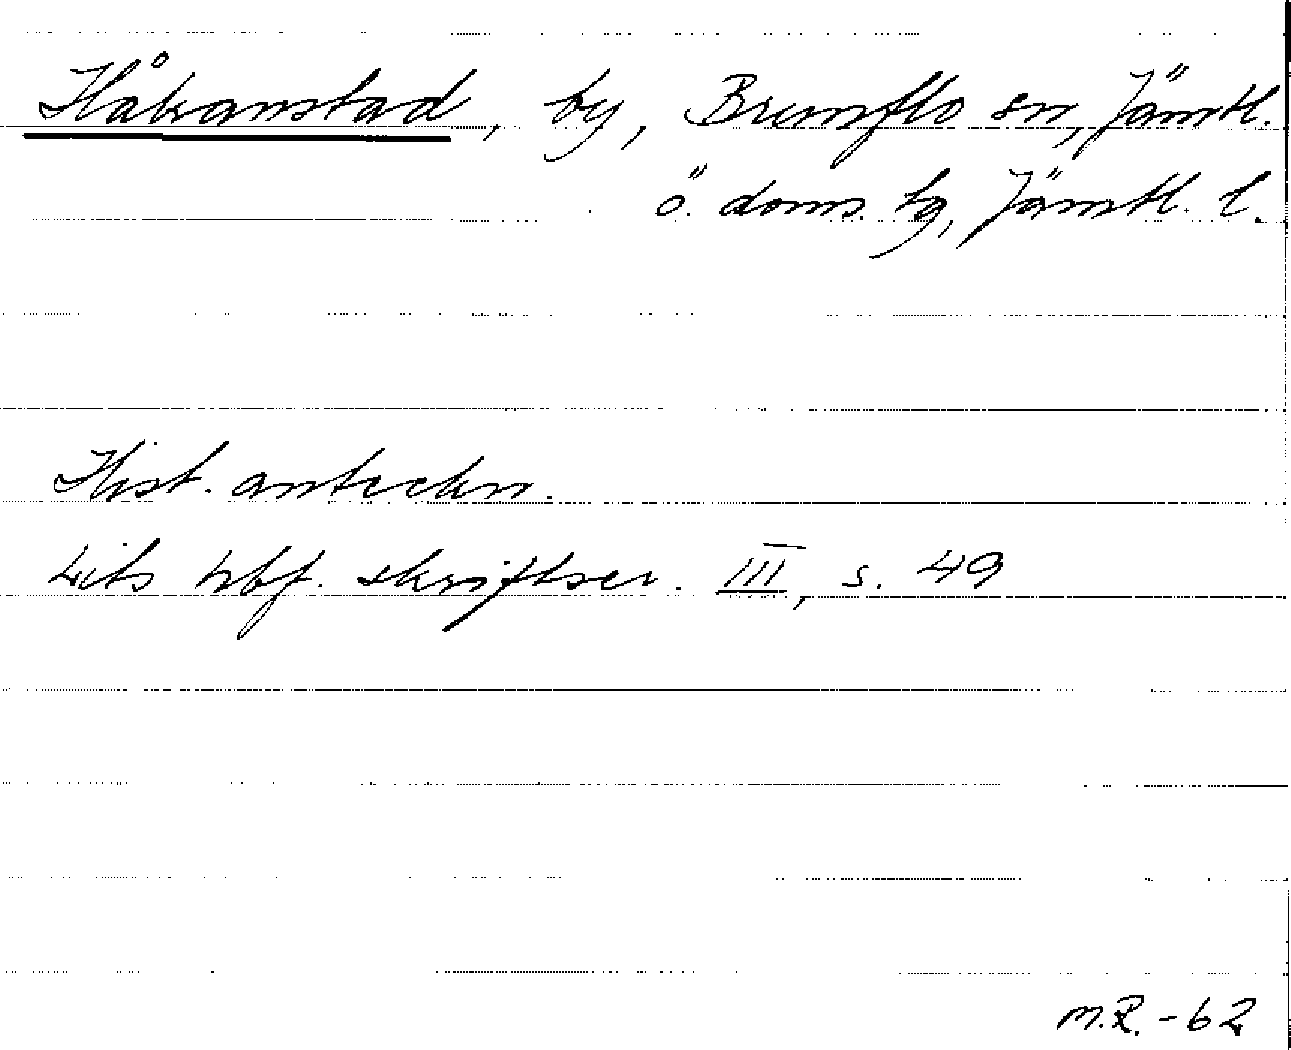 Håkanstad, by, Brunflo sn, Jämtl.
ö. doms. tg, Jämtl. l.
Hist. anteckn.
Lits hbf. skriftser. III, s. 49
M.R. -62